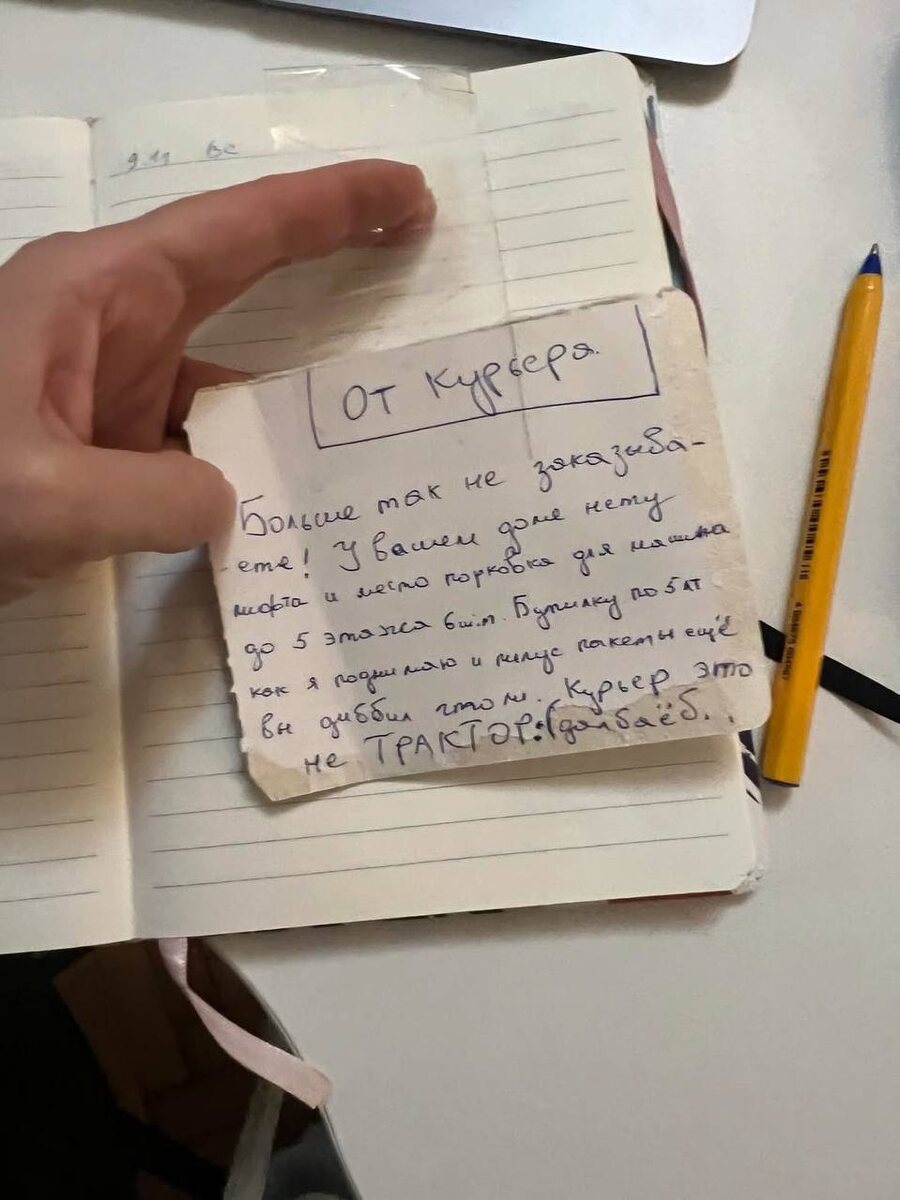 9.11 вс
От курьера.
Больше так не заказыва-
-ете! У вашем доме нету
лифта и место порковка для машина
до 5 этажа 6 ш.п. Бутилку по 5 лт
как я поднимаю и плюс пакеты ещё
вы диббил што ли. Курьер это
не ТРАКТОР:(далбаёб..